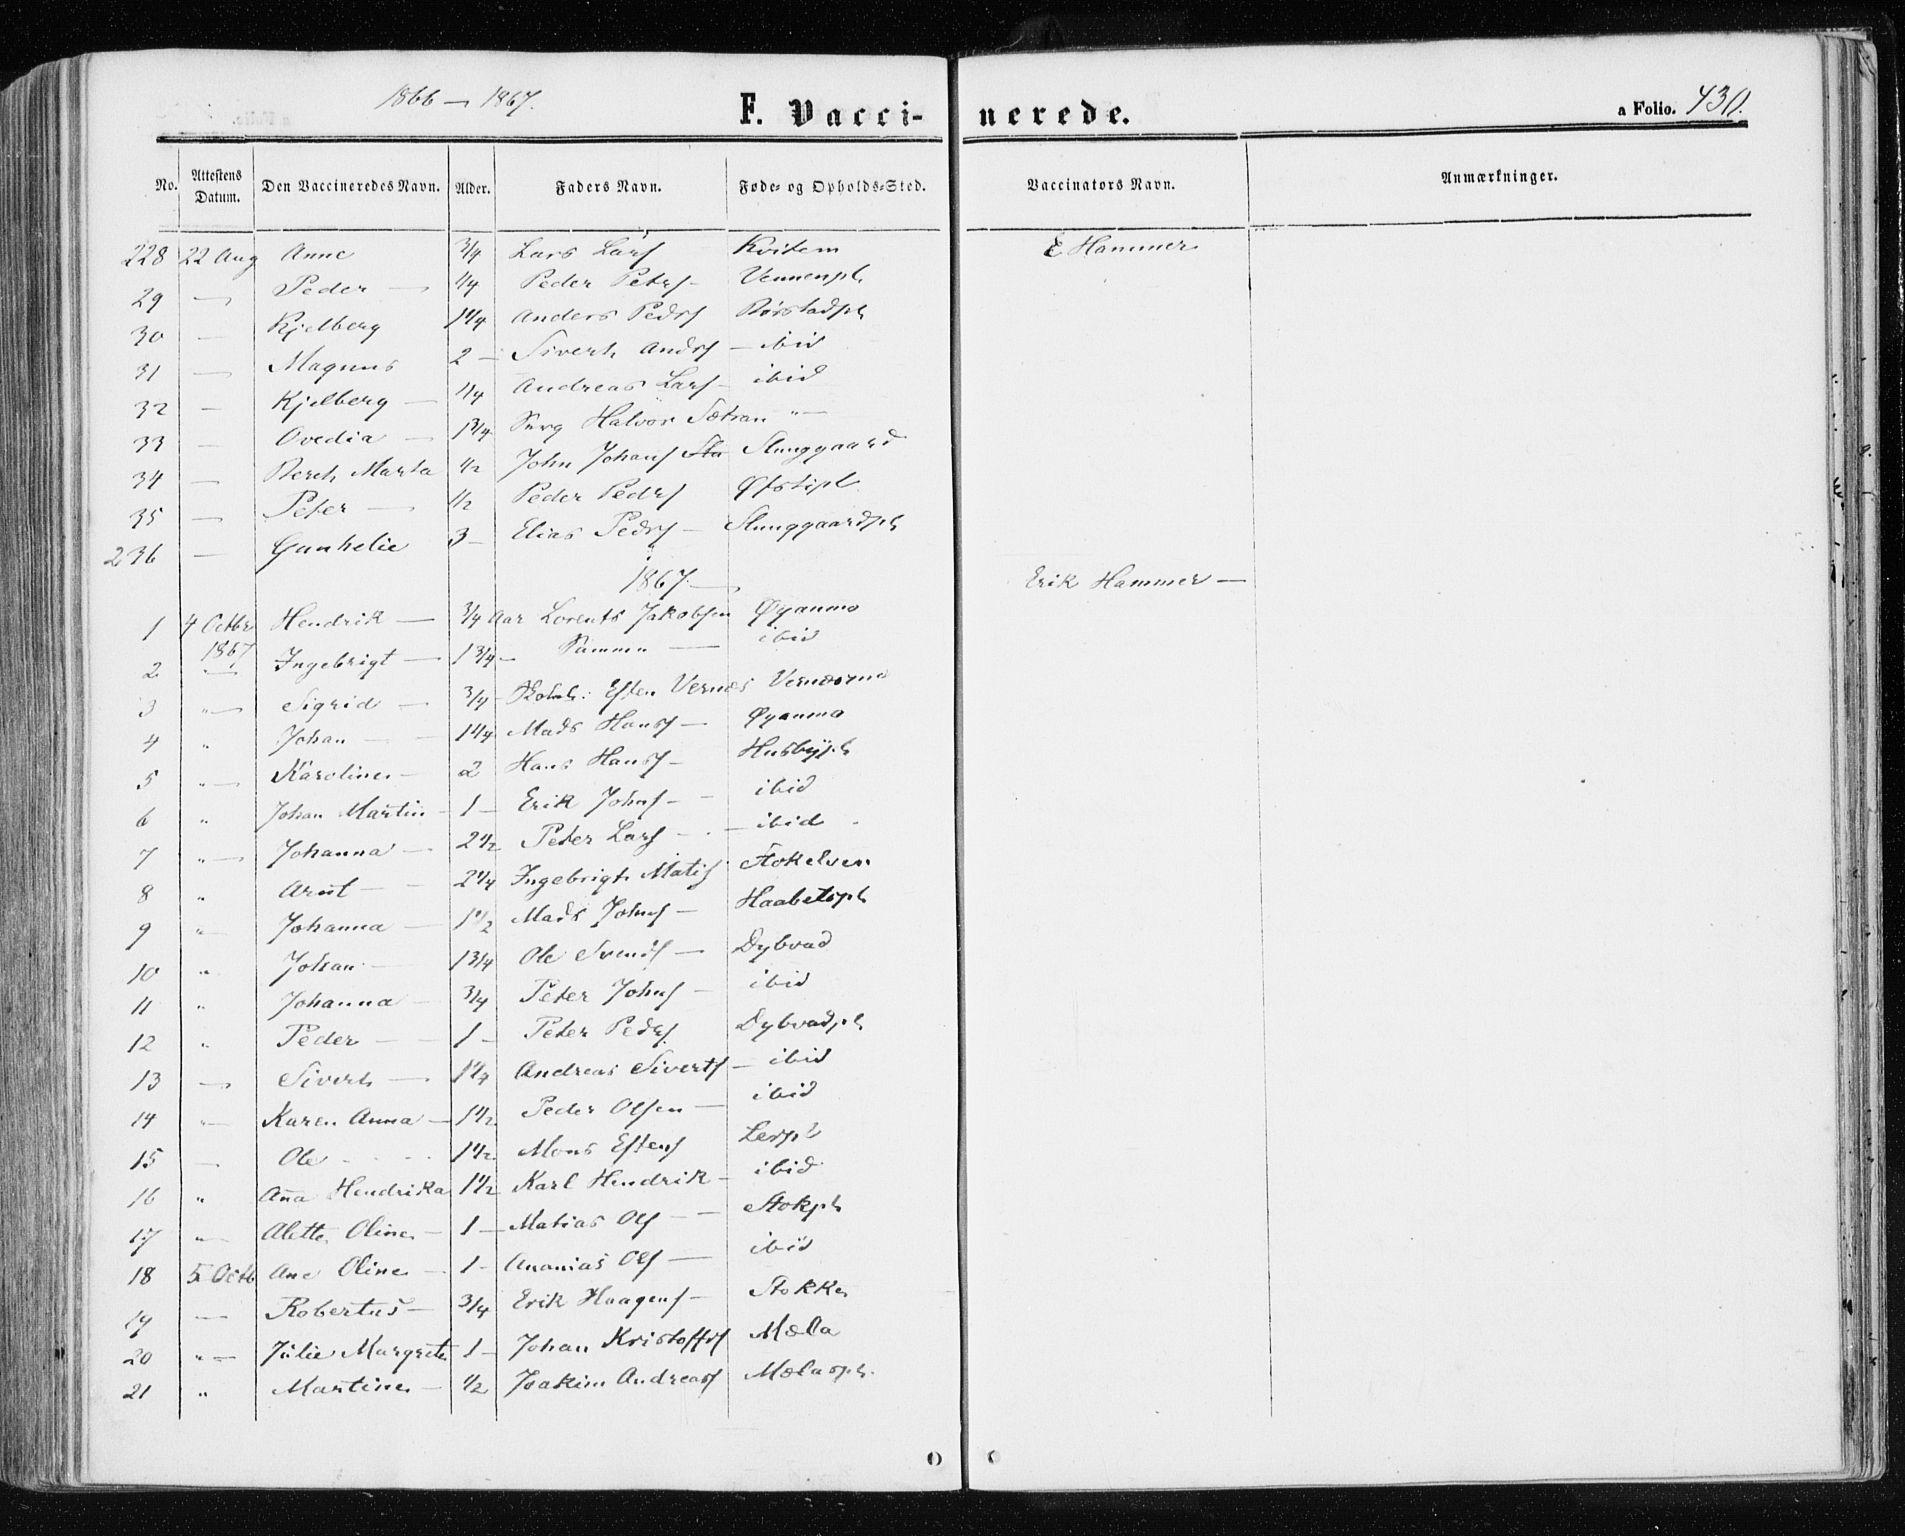 1866 — 1867.
F. Vaccinerede.
a Folio. 430.
No. Attestens Datum. Den Vaccineredes Navn. Alder. Faders Navn. Føde- og Opholds-Sted. Vaccinators Navn. Anmærkninger.
228 22 Aug Anne 3/4 Lars Lars Kvitem E Hammer
29 — Peder — 1/4 Peder Peters — Vennenpl
30 — Kjelberg 1 1/4 Anders Peders Børstadpl
31 — Magnus 2 — Sivert Anders — ibid
32 — Kjelberg — 1/4 Andreas Lars — ibid
33 — Ovedia — 1 3/4 Serg Halvor Sætran " —
34 — Bereth Marta 1/2 John Johans Slunggaard
35 — Peter — 1/2 Peder Peders Øfstipl
236 — Gunhelie 3 — Elias Peders — Slunggaardpl
1867. —
Erik Hammer —
1 4 Octbr 1867 Hendrik — 3/4 Aar Lorents Jakobsen Øyanmo
2 — Ingebrigt — 1 3/4 — Samme — ibid
3 " — Sigrid — 3/4 — Esten Vernes Vernæsmo
4 " Johan — 1 1/4 Mads Hans — Øyanmo
5 " — Karoline — 2 Hans Hans — Husbypl
6 " Johan Martin — 1 — Erik Johns — ibid
7 " — Johanna — 2 1/2 Peter Lars — ibid
8 " Arnt — 2 1/4 Ingebrigt Matis Stokelven
9 " — Johanna — 1 1/2 Mads Johns — Haabetspl
10 " Johan — 1 3/4 Ole Svends — Dybvad
11 " Johanna — 3/4 Peter Johns — ibid
12 " Peder — 1 — Peter Peders Dybvadpl
13 — Sivert — 1 1/4 Andreas Siverts — ibid
14 " — Karen Anna — 1 1/2 Peder Olsen — ibid
15 — Ole 1 1/2 Mons Estens Lerpl
16 " Anna Hendrika 1 1/2 Karl Hendrik — ibid
17 " — Alette Oline — 1 — Matias Ols — Stokpl
18 5 Octb Ane Oline — 1 — Ananias Ols — ibid
19 — Robertus — 3/4 Erik Haagens — Stokke
20 " — Julie Margrete 1 — Johan Kristoffs Mæla
21 " Martine — 1/2 Joakim Andreas Mælaspl.